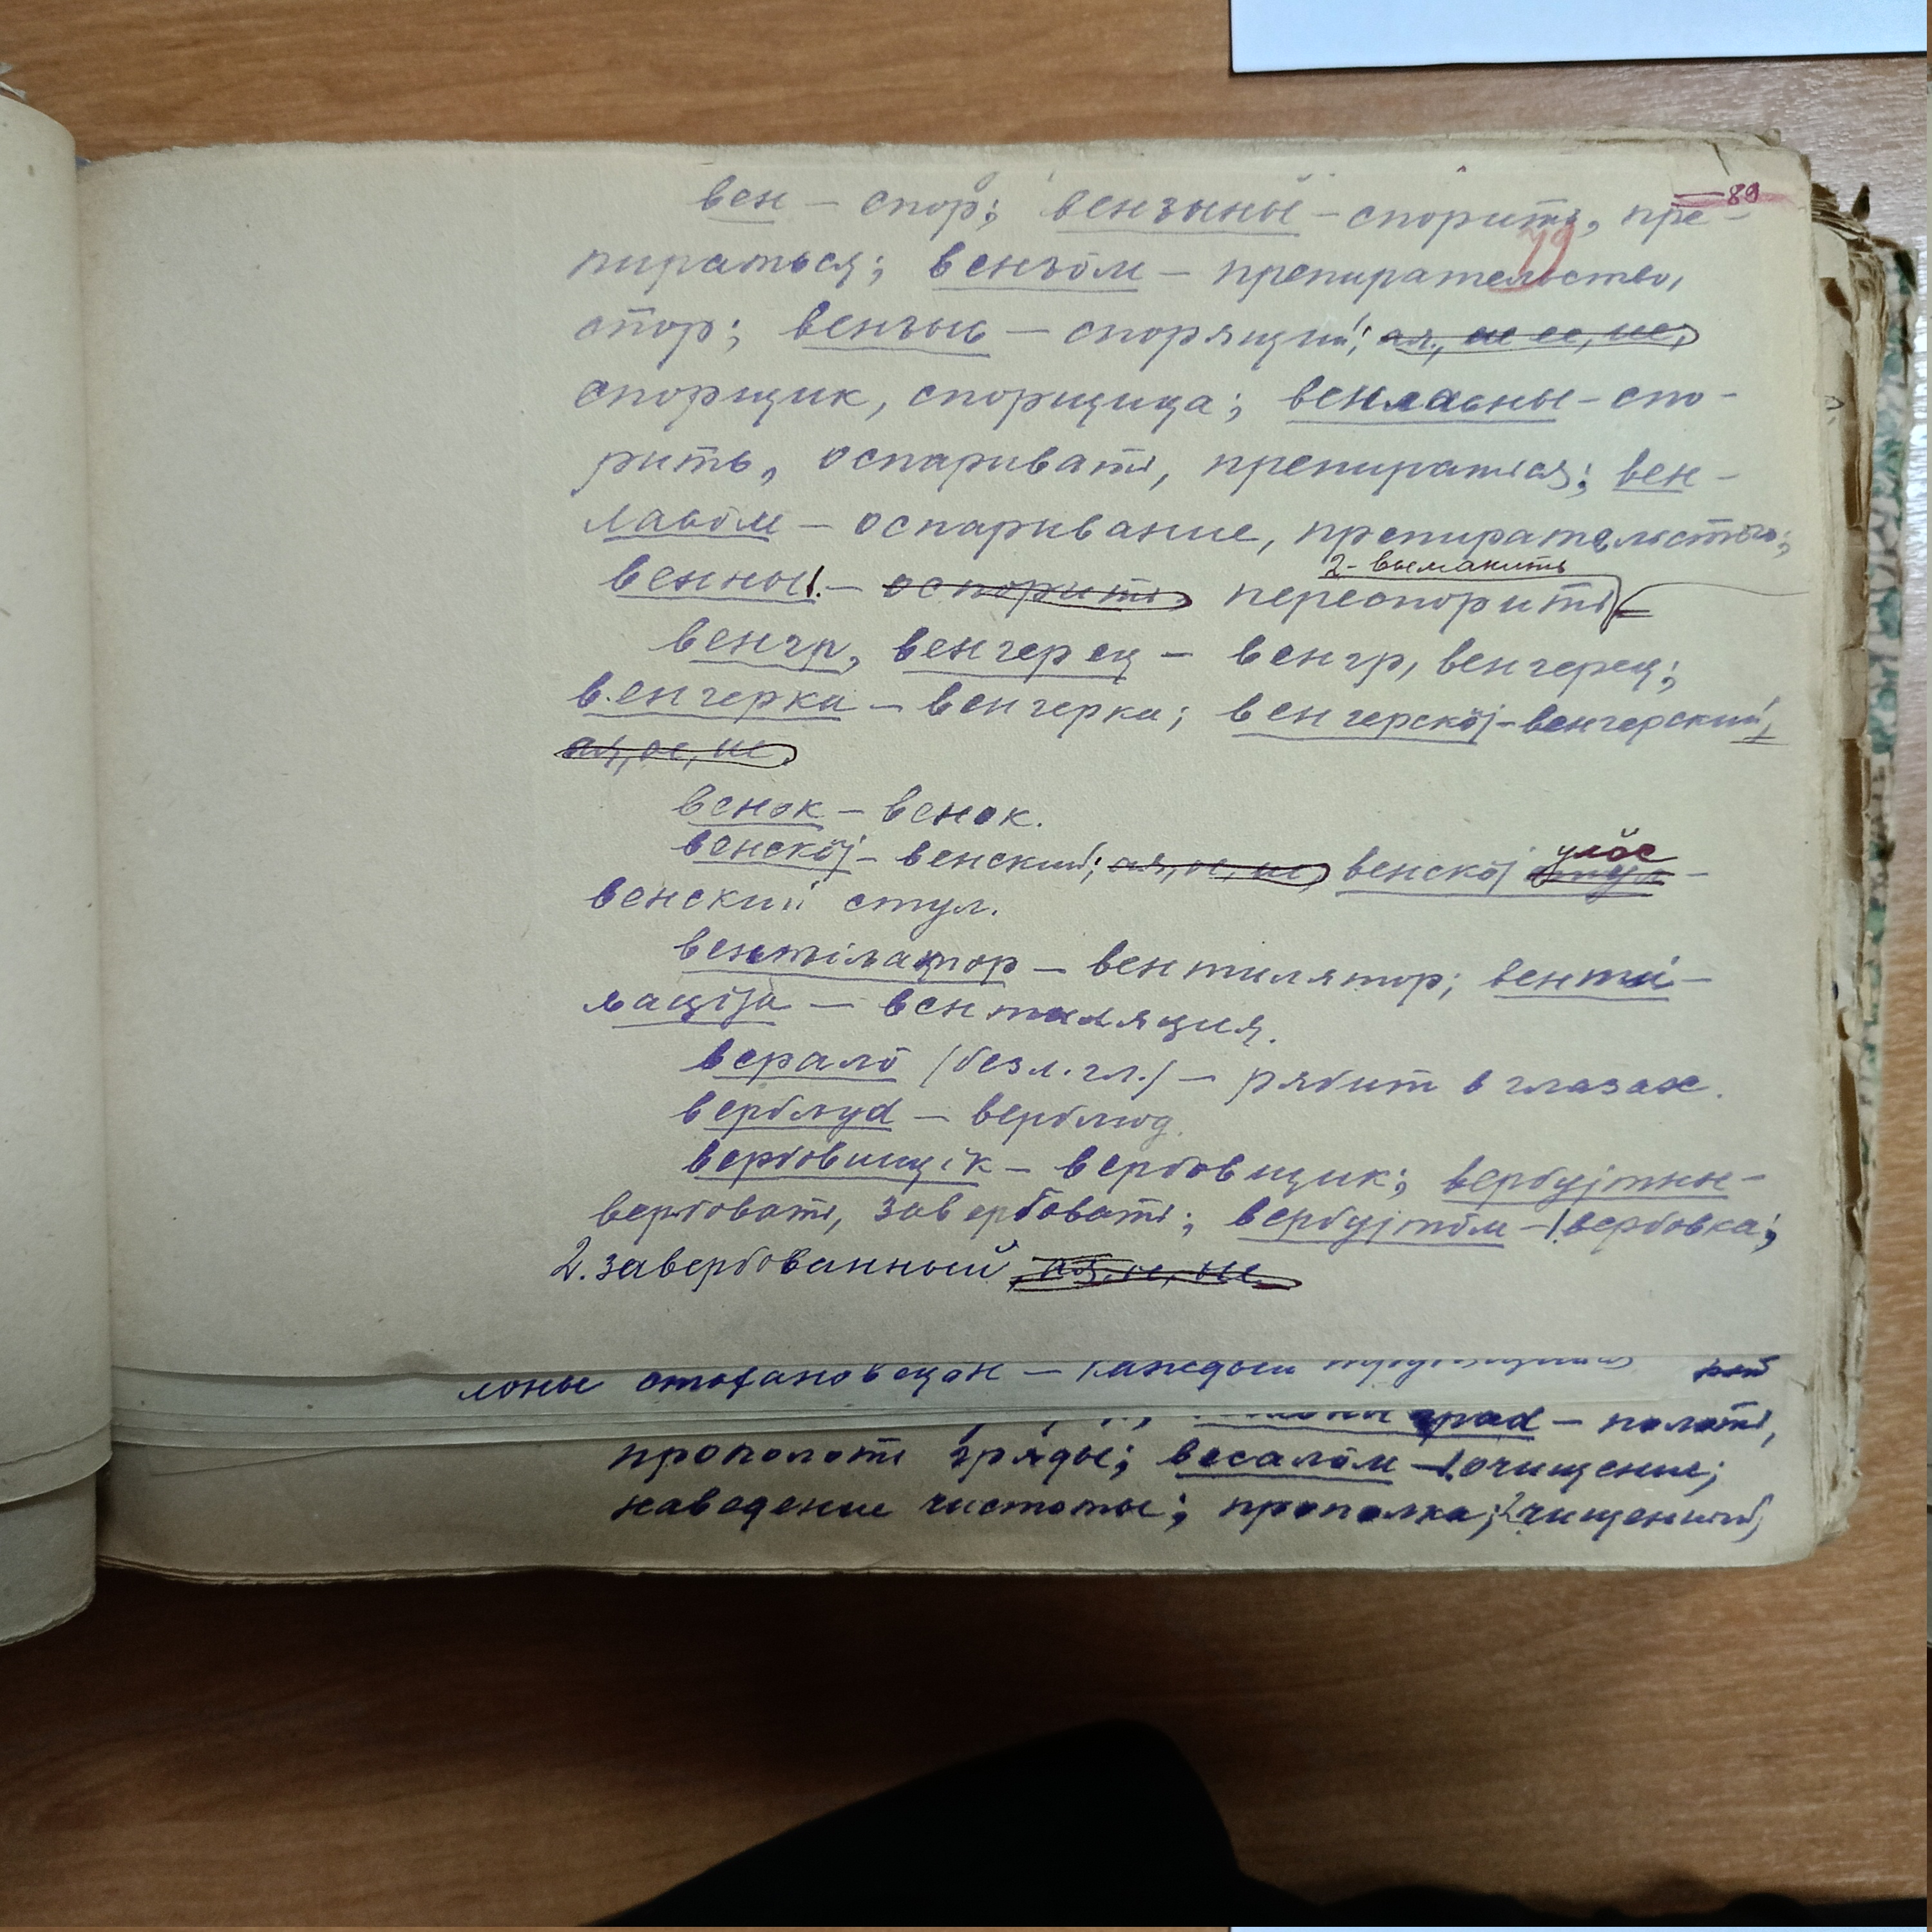 89
79
вен – спор; вензыны – спорить, пре-
пираться; вензӧм – препирательство,
спор; вензыс – спорящий; ая, ое, ие,
спорщик, спорщица; венласны – спо-
рить, оспаривать, препираться; вен-
ласӧм – оспаривание, препирательство;
2- выманить
венны 1. – оспорить, переспорить
венгр, венгерец – венгр, венгерец;
венгерка – венгерка; венгерскӧј – венгерский,
ая, ое, ие.
венок – венок.
улӧс
венскӧј – венский; ая, ое, ие, венскӧј стул –
венский стул.
вентіԉатор – вентилятор; венті-
ԉаціја – вентиляция.
вералӧ (безл. гл.) – рябит в глазах.
верблуd – верблюд.
вербовщік – вербовщик; вербујтны –
вербовать, завербовать; вербујтӧм – 1. вербовка;
2. завербованный, ая, ое, ые.
лоны стахановецӧн – каждый
граd – полоть,
прополоть гряды; весалӧм – 1. очищение;
наведение чистоты; прополка; 2. чищенный,